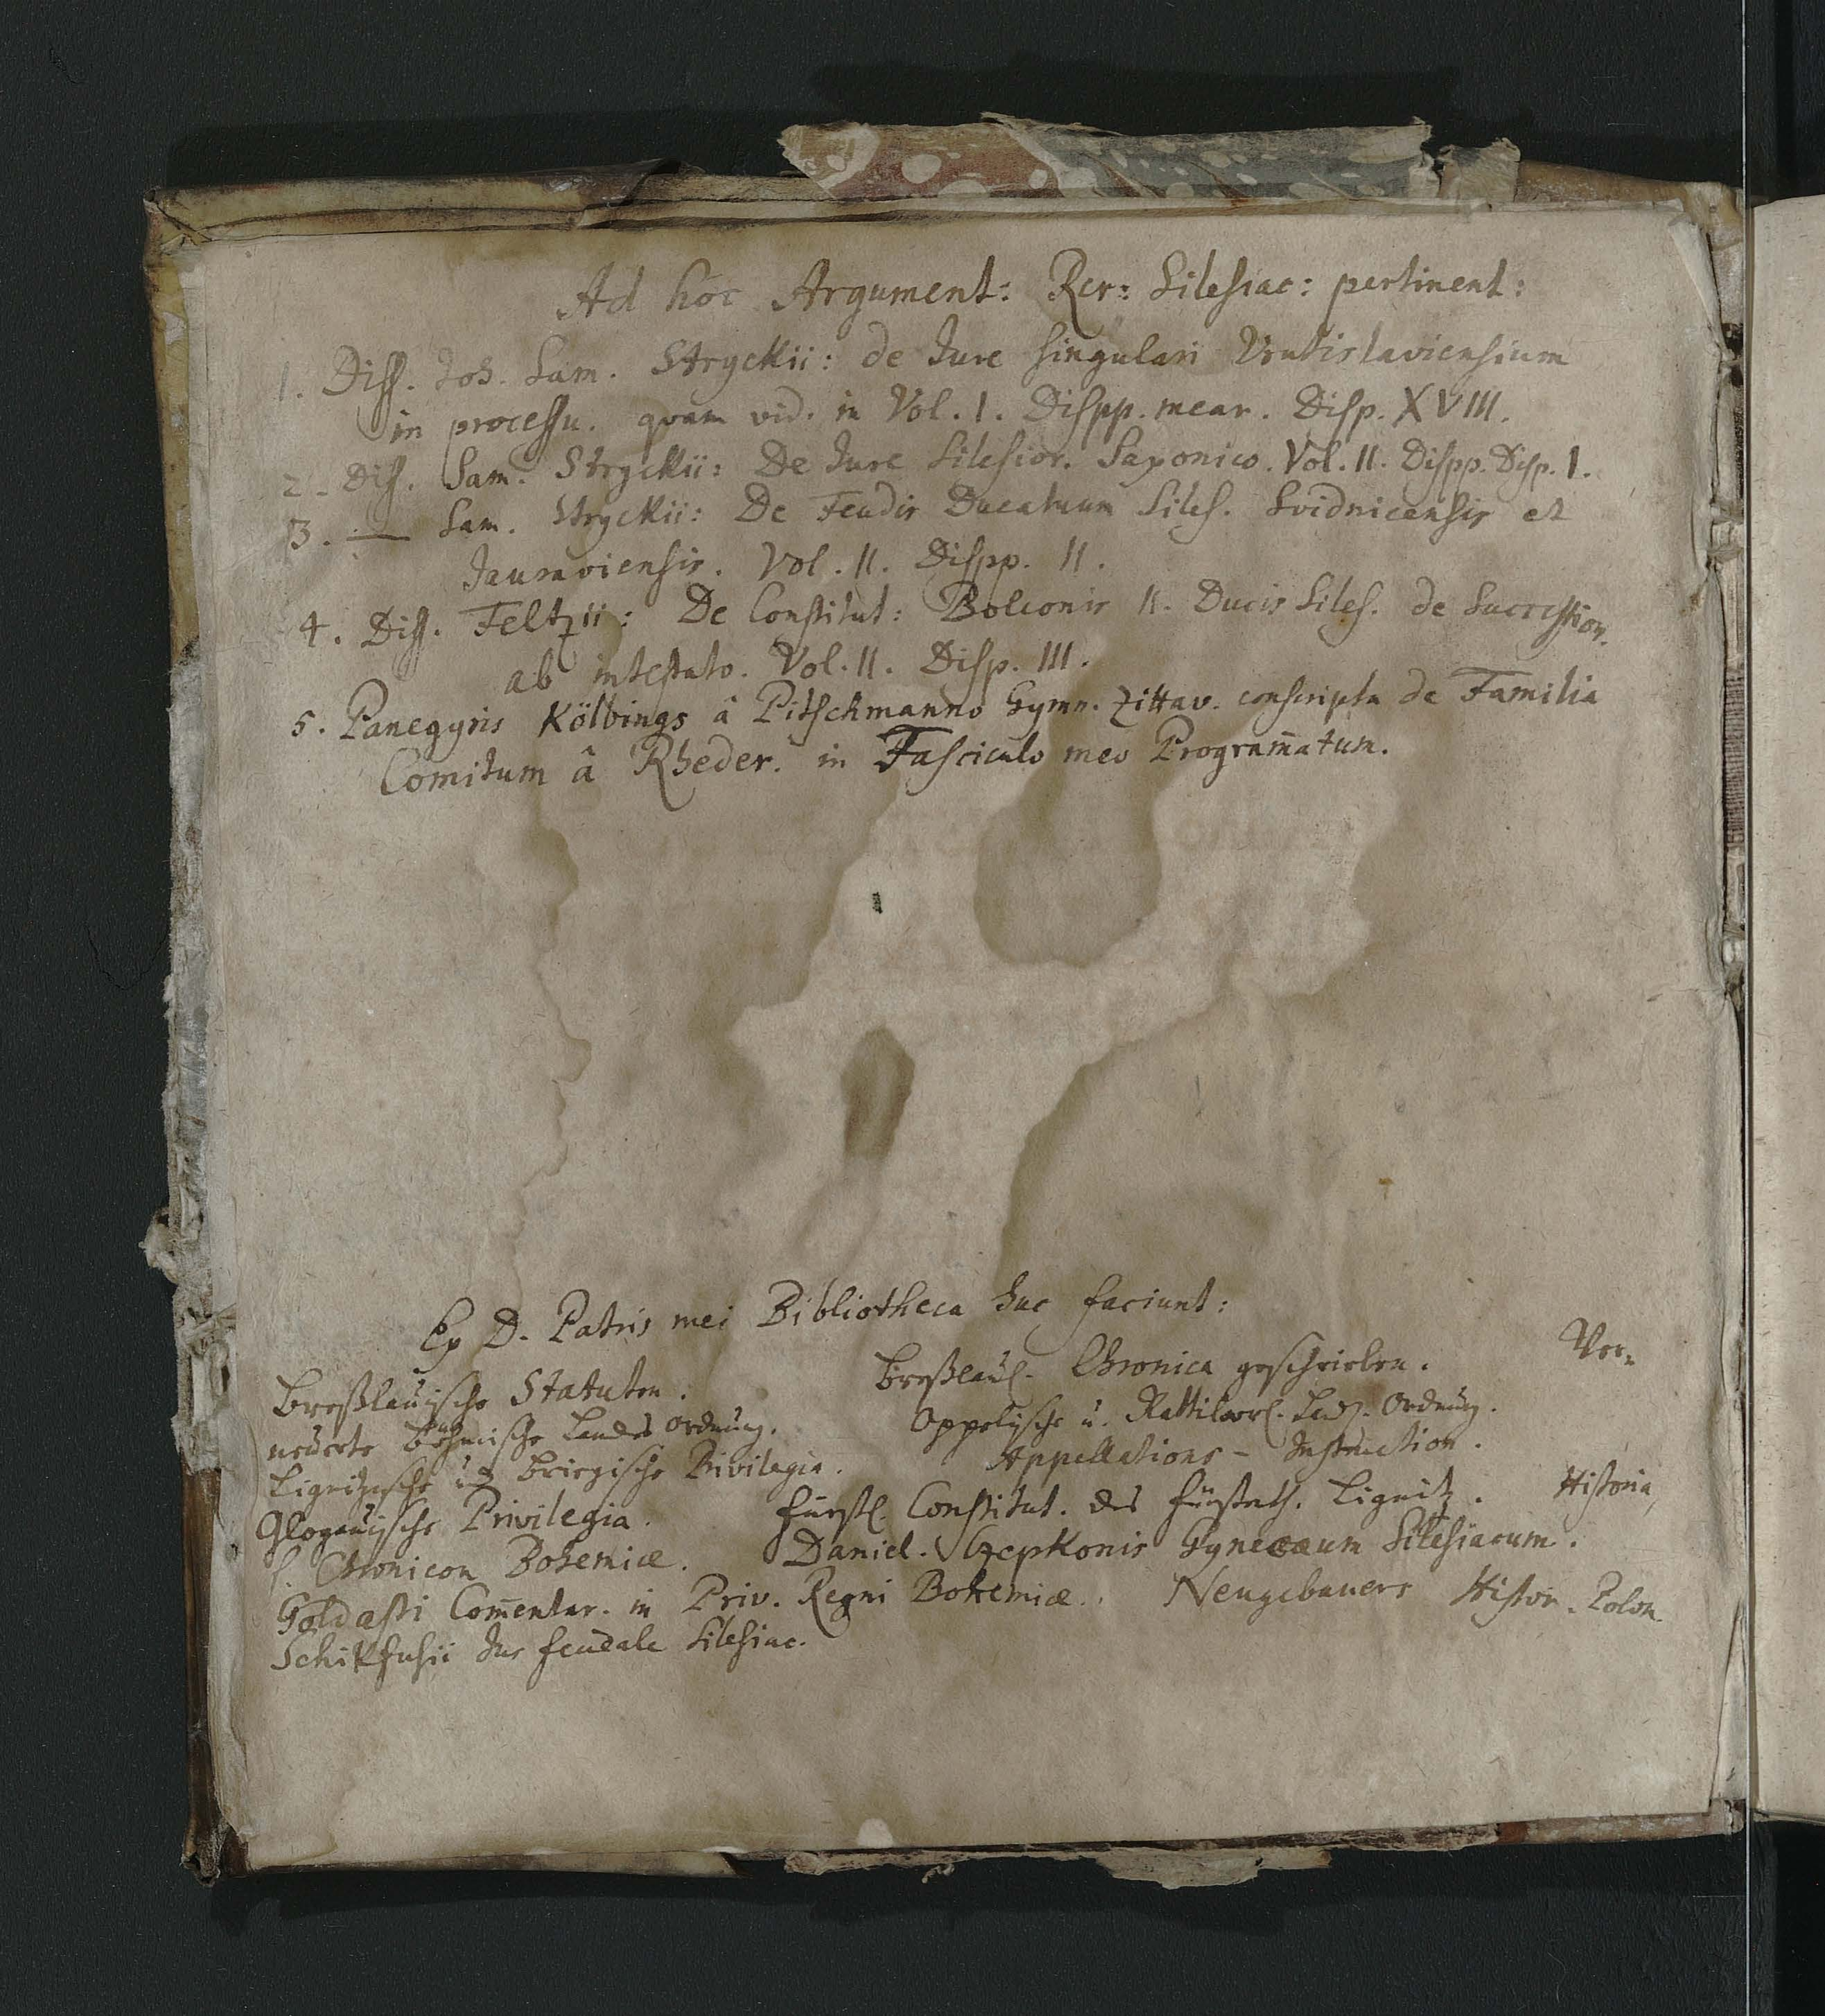 Ad hoc Argument: Rer: Silesiac: pertinent:
1. Diss. Joh. Sam. Stryckii: de Jure singulari Vratislaviensium
in processu. quam vid. in Vol. I. Dispp. mear. Disp. XVIII.
2. Diss. Sam. Stryckii: De Jure Silesior. Saxonico. Vol. II. Dispp. Disp. I.
3. — Sam. Stryckii: De Feudis Ducatuum Siles. Svidnicensis et
Jauraviensis. Vol. II. Dispp. II.
4. Diss. Feltzii: De Constitut: Bolconis II. Ducis Siles. de Succession.
ab intestato. Vol. II. Disp. III.
5. Panegyris Kölbings â Pitschmanno Gymn. Zittav. conscripta de Familia
Comitum â Rheder. in Fasciculo meo Programmatum.
Ex D. Patris mei Bibliotheca huc faciunt:
Breßlauische Statuten. Breßlaul. Chronica geschrieben. Ver-
neuerte Böhmische Landes Ordnung. Oppelische u. Rattiborl. Lands. Ordnung.
Lignitzische und Briegische Privilegia. Appellations-Instruction.
Glogauische Privilegia. Fürstl. Constitut. des Fürstenth. Lignitz. Historia
s. Chronicon Bohemiæ. Daniel. Czepkonis Gynecæum Silesiacum.
Goldasti Com̄entar. in Priv. Regni Bohemiæ. Neugebauers Histor. Polon.
Schikfusii Jus feudale Silesiae.